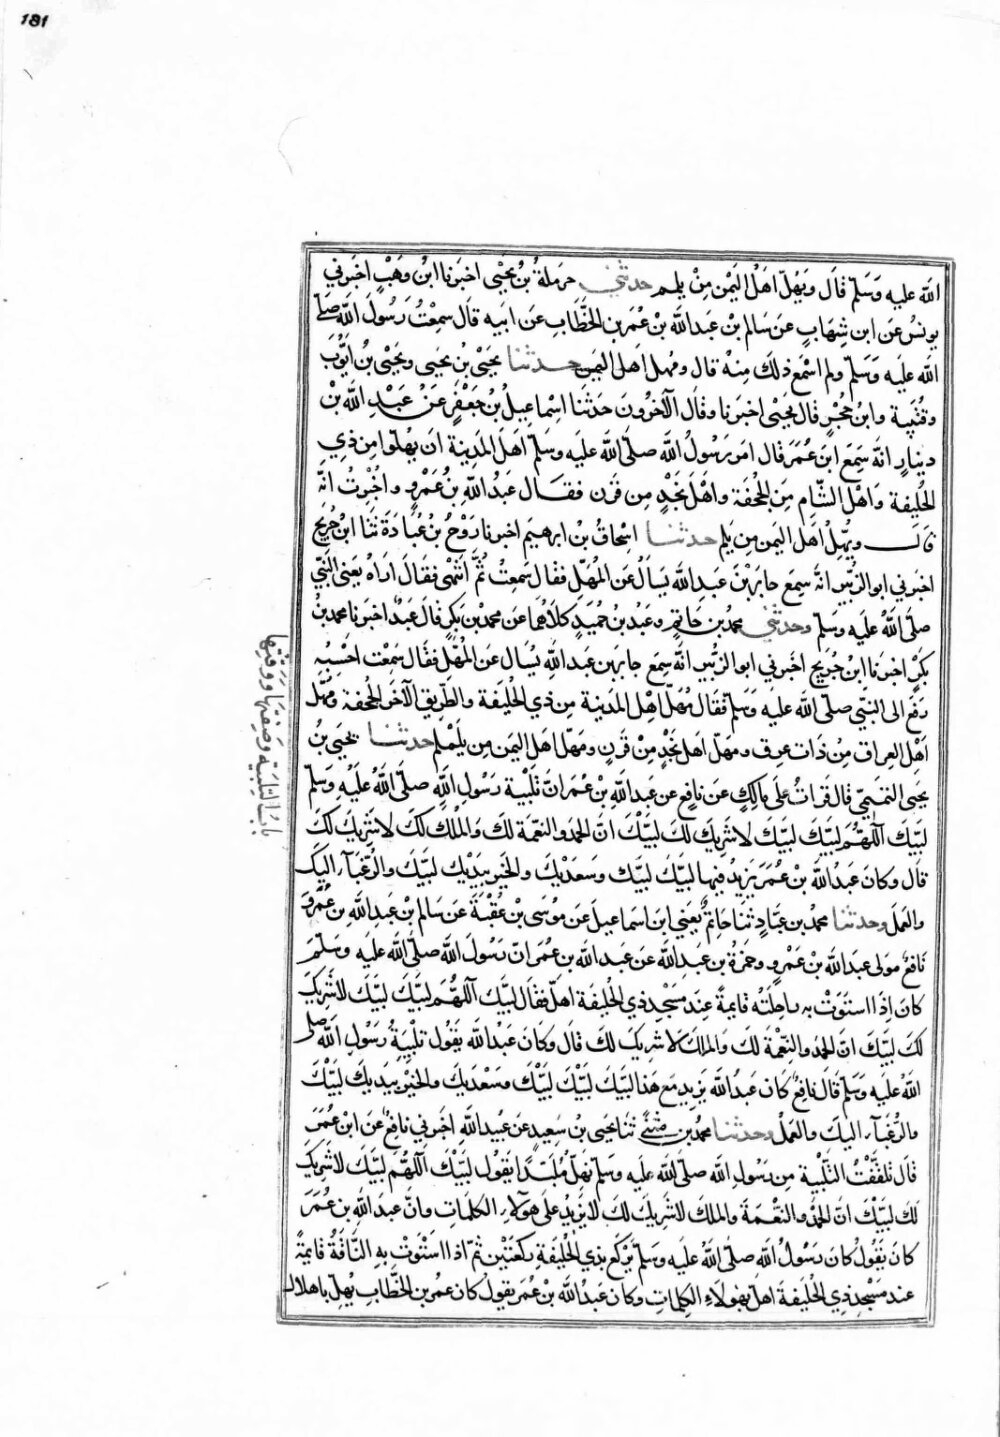 181
الله عليه وَسَلم قال ويهلّ اهلُ اليمن مِنْ يلملم حدثني حرملةُ بنُ يحيى اخبرنا ابنُ وهبٍ اخبرني
يونسُ عن ابن شِهَابٍ عن سَالم بن عَبد الله بن عُمَر بن الخطّاب عَن ابيه قال سمِعْتُ رسُولَ الله صلى
الله عليه وَسَلّم ولم اسْمع ذلك مِنهُ قال ومُهل اهل اليمن حدثنا يحيى بن يحيى ويحيى بن ايوُّبَ
وقتيبة وابن حُجْرٍ قال يحيى اخبرنا وقال الآخرون حَدثنا اسماعيل بن جعْفَرٍ عَنْ عَبْدِ الله بن
دينارٍ انه سَمِعَ ابن عُمَرَ قال امر رسُولُ الله صلّى الله عليه وسلّم اهْلَ المدينة ان يهلّوا مِن ذي
الحُليفة وَاهْل الشّام مِن الجحفة واهْل نَجْدٍ من قرن فقال عَبدُ الله بن عُمر و واخبِرْتُ انهُ
قال ويُهلّ اهل اليمن من يلملم حدثنا اسحاقُ بن ابرهيم اخبرنا رَوْحُ بن عُبادَة ثَنا ابنُ جُريجٍ
اخبرني ابو الزبير انهُ سمِعَ جابر بن عَبد الله يسَالُ عن المُهلّ فقال سَمِعتُ ثُمّ انتهى فقال اراهُ يعني النبيّ
صلّى اللهُ عليه وَسَلم وحدثني محمد بن حاتمٍ وعبدُ بن حُميدٍ كلاهُما عن محمد بن بكرٍ قال عبدٌ اخبرنا محمد بن
بكرٍ اخبرنا ابن جُريج اخبرني ابو الزُّبير انه سَمِعَ جابر بن عَبد الله يُسال عن المُهلّ فقال سَمِعْت احْسِبُه
رَفع الى النبيّ صلى الله عليه وَسَلم فقال مُهلّ اهْل المدينة من ذي الحُليفة والطريق الآخر الجحفة ومُهلّ
اهْل العِراق مِنْ ذات عِرق ومهلّ اهل نجْدٍ مِنْ قَرنٍ ومهلّ اهل اليمن من يلملم حدثنا يحيى بنُ
يحيى التميميّ قال قرَاتُ على مَالكٍ عن نافعٍ عن عبد الله بن عُمَر انّ تلْبية رَسُول اللهِ صلّى اللهُ عليْهِ وسَلمَ
لبيّك اللّهُمّ لبيّك لبيّك لا شَريك لك لبّيْك انّ الحمدَ والنعْمة لك والملك لك لا شَرِيك لك
قال وكان عبدُ الله بن عُمَرَ يَزيدُ فيها لبيّك لبيّك وسَعديْك والخيرُ بيديْك لبيّك والرّغبَآءُ اليك
والعملُ وحدثنا محمد بن عَبّادٍ ثنا حَاتمٌ يعني ابن اسماعيل عن مُوسَى بن عُقبَةَ عن سَالم بن عَبد الله بن عُمَرَ و
نافعٌ مَولى عبد الله بن عُمَر و وحمزة بن عبد الله عن عبد الله بن عُمَر انّ رسُولَ الله صلّى الله عليه وسَلّمَ
كان اذا استوَتْ به راحلتُه قايمةً عند مَسجد ذي الحُليفة اهلّ فقال لبّيك اللّهُمّ لبيّك لبيّك لا شريك
لك لبيّك انّ الحمدَ والنعْمةَ لك والملك لا شريك لك قال وكانَ عَبدُ الله يقول تلبيةُ رسُول الله صلى
اللهُ عليه وَسَلم قال نافعٌ كان عبدُ الله يَزيد مَع هَذا لبيّك لبيّك لبّيْك وسَعْديك والخيْر بيديك لبّيْك
والرّغبَآء اليك والعملُ وحدثنا محمد بن مثنى ثنا يحيى بن سَعيدٍ عن عبيد الله اخبرني نافعٌ عَن ابْن عُمَر
قال تلقّفتُ التلبية مِن رسُول الله صلى الله عليه وسَلم يُهلّ مُلبّدًا يقول لبّيْك اللّهُمّ لبّيْك لا شريك
لك لبّيْك انّ الحمدَ والنعْمة والملك لا شريك لك لا يزيد على هَولآء الكلمات وانّ عبد الله بن عُمَرَ
كان يقول كان رسُولُ الله صلى اللهُ عليه وسَلم يَرْكع بذي الحُليفة ركعَتيْن ثمّ اذا اسْتوت به النّاقةُ قايمةً
عند مَسْجد ذي الحُليفة اهلّ بهولاءِ الكلماتِ وكان عَبدُ الله بن عُمَر يقول كان عمر بن الخطّاب يُهلّ باهلال
بابُ التلبيَة وَصِفتها ووَقتها